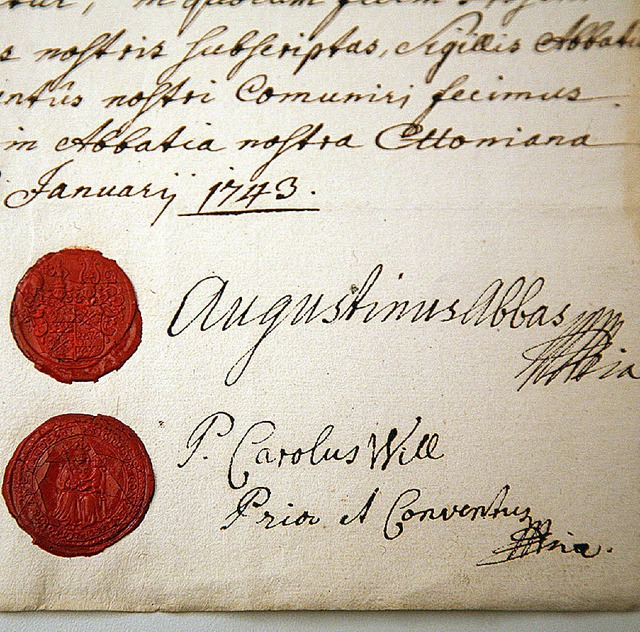 in quorum fidem
s nostris subscriptas, Sigillis Abbati
entûs nostri Comuniri fecimus.
in Abbatia nostra Ettoniana
Januarij 1743.
Augustinus Abbas
mppria
P. Carolus Will
Prior et Conventus
mppria.